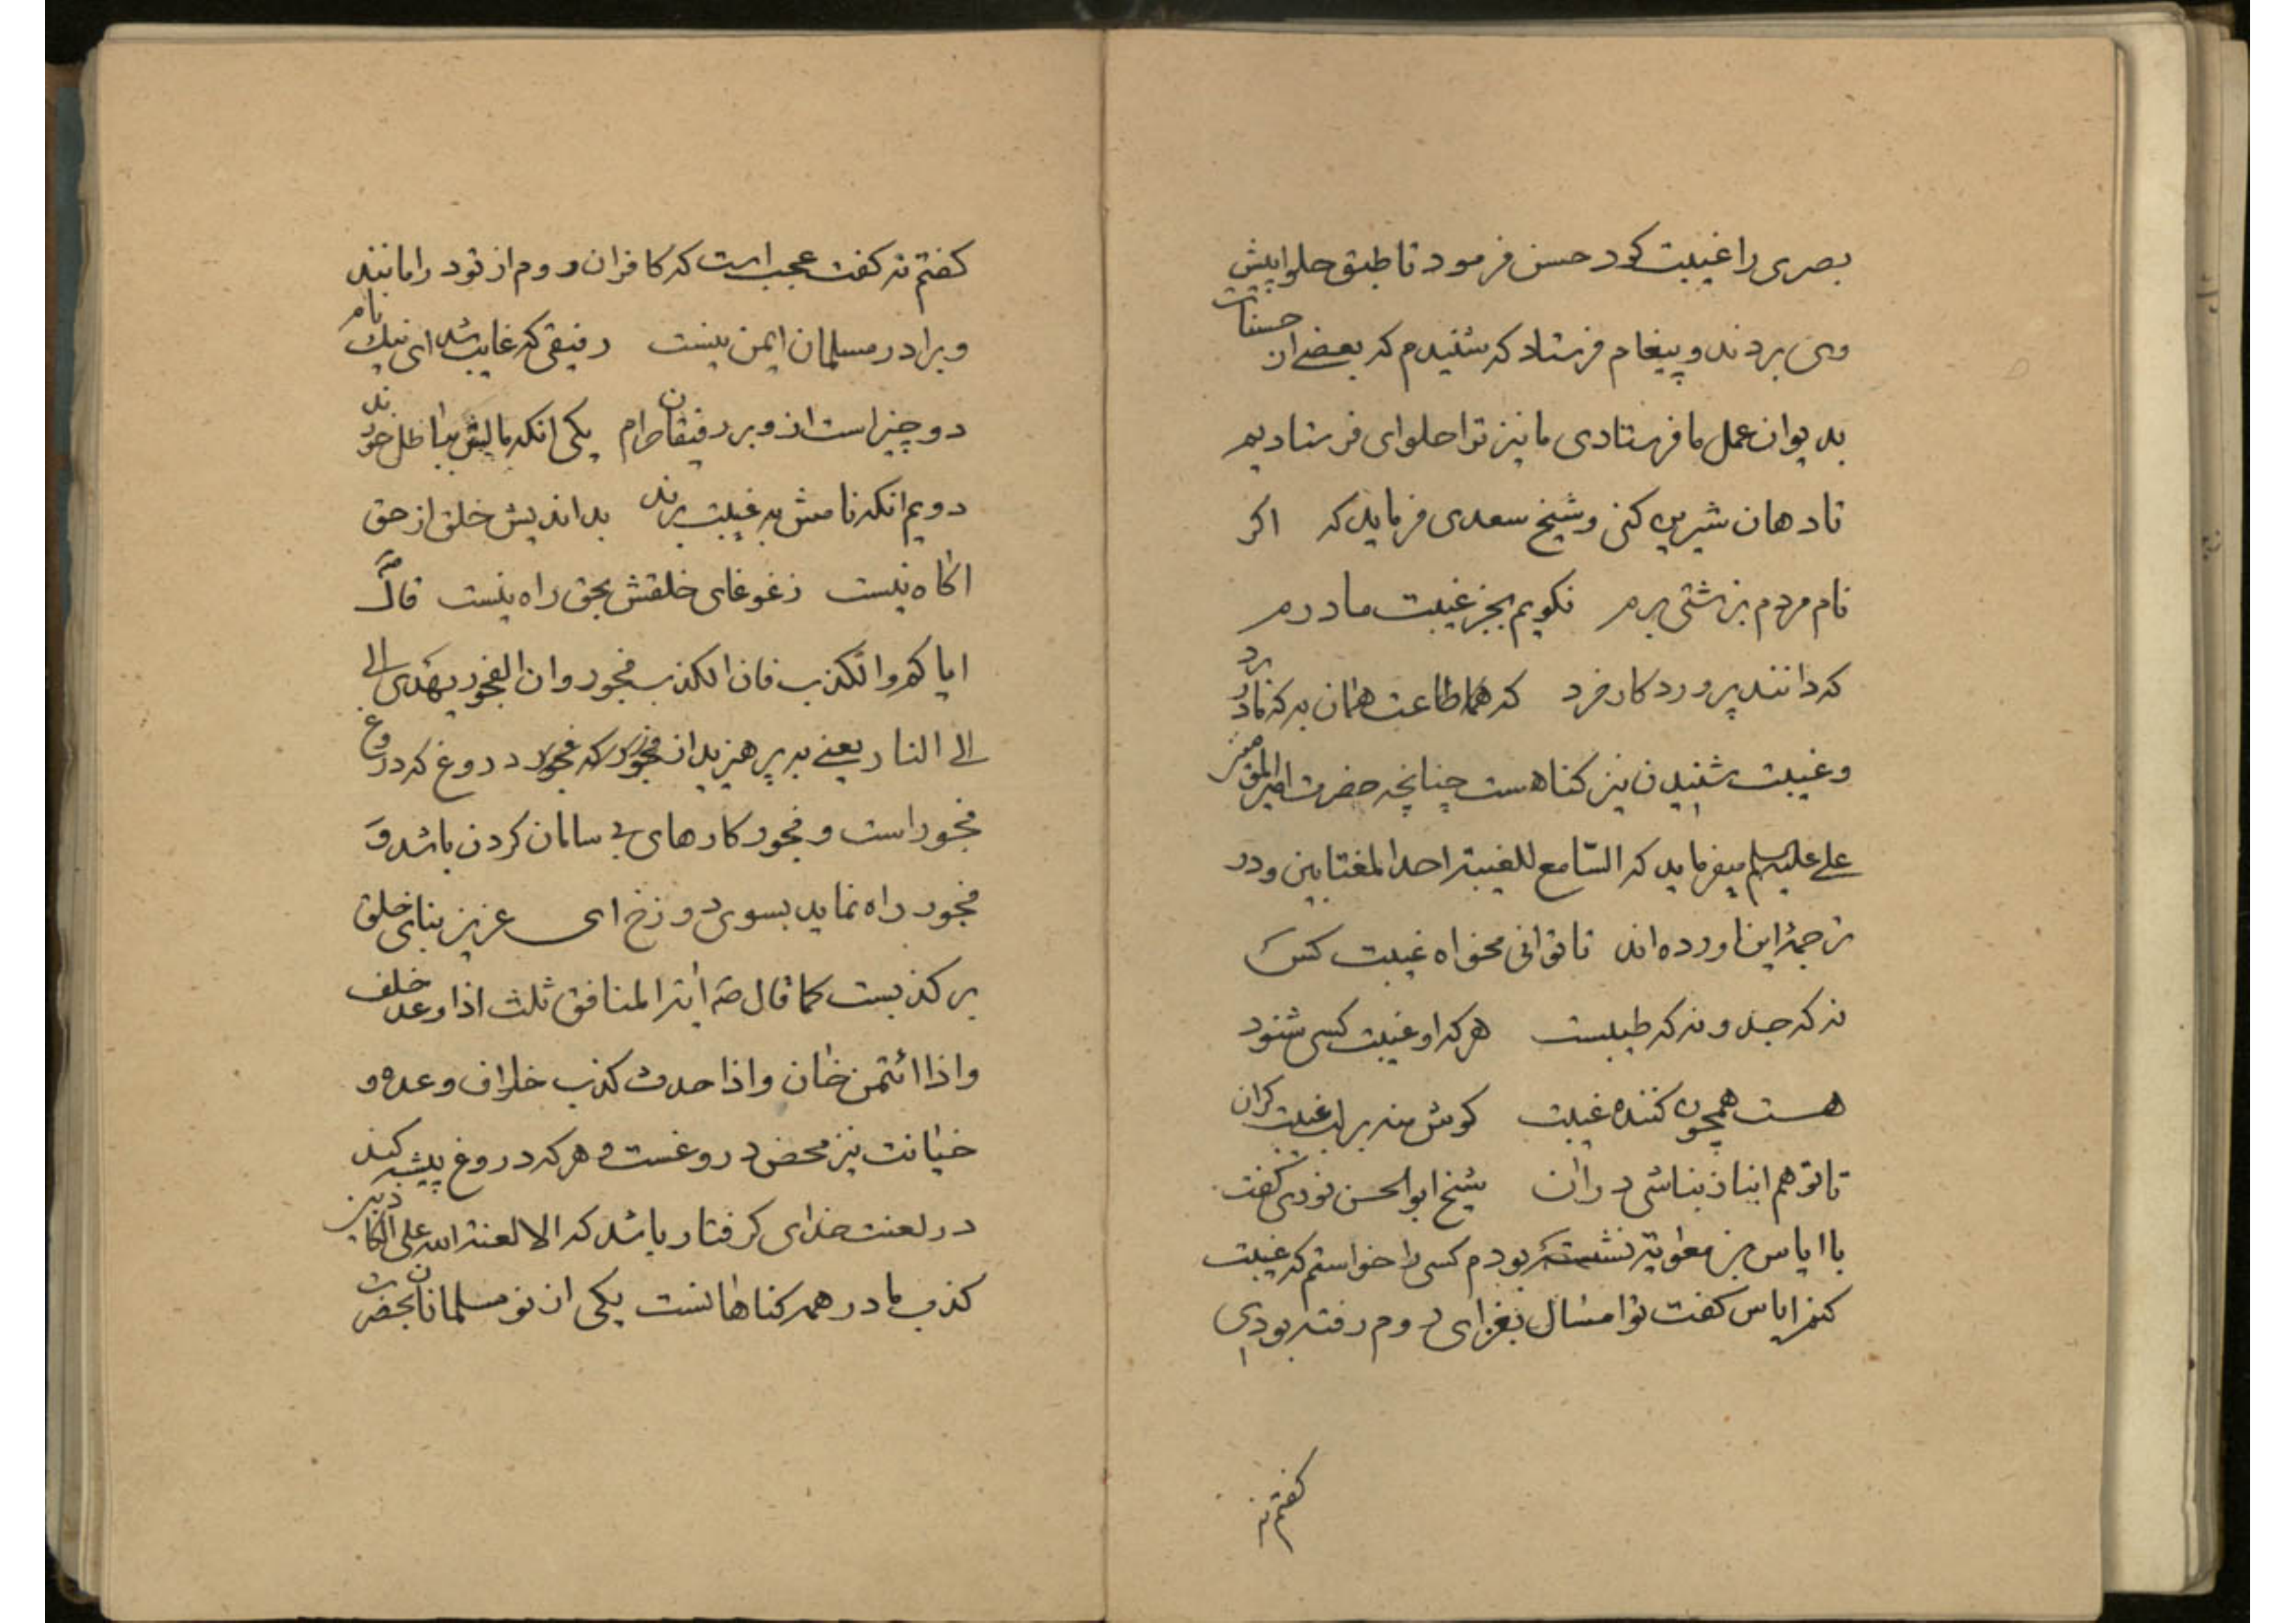 بصری را غیبت کرد حسن فرمود تا طبق حلوا پیش
وی بردند و پیغام فرستاد که شنیدم که بعضی از حسنات
بدیوان عمل ما فرستادی ما نیز ترا حلوای فرستادیم
تا دهان شیرین کنی و شیخ سعدی فرماید که اکر
نام مردم بزشتی برم نکویم بجز غیبت مادرم
که دانند پرورد کار خرد که هم طاعت همان به که مادر برد
و غیبت شنیدن نیز کناهست چنانچه حضرت امیرالمؤمنین
علی علیه السلم میفرماید که السّامع للغیبة احد المغتابین و در
ترجمهٔ این اورده اند تا توانی مخواه غیبت کس
نه که جد و نه که طیبست هر که او غیبت کسی شنود
هست همچون کننده غیبت کوش منه بر لب غیبت کران
تا تو هم انباز نباشی دران شیخ ابوالحسن نوری کفت
با ایاس بن معویة نشسته بودم کسی را خواستم که غیبت
کنم ایاس کفت تو امسال بغزای روم رفته بودی
کفتم نه
کفتم نه کفت عجب است که کافران روم از تو در امانند
و برادر مسلمان ایمن نیست رفیقی که غایب شد ای نیک نام
دو چیز است ازو بر رفیقان حرام یکی انکه مالش بباطل خورند
دویم انکه نامش به غیبت برند بد اندیش خلق از حق
اکاه نیست ز غوغای خلقش بحق راه نیست قال ص
ایاکم والکذب فان الکذب فجور وان الفجور یهدی الی
الی النار یعنی به پرهیزید از دروغ که دروغ
فجور است و فجور کارهای بی سامان کردن باشد و
فجور راه نماید بسوی دوزخ ای عزیز بنای خلق
بر کذبست کما قال ص ایة المنافق ثلث اذا وعد خلف
واذا ائتمن خان واذا حدث کذب خلاف وعده و
خیانت نیز محض دروغست و هر که دروغ پیشه کند
در لعنت خدای کرفتار باشد که الا لعنة الله علی الکاذبین
کذب مادر همه کناهانست یکی از نو مسلمانان بحضرت